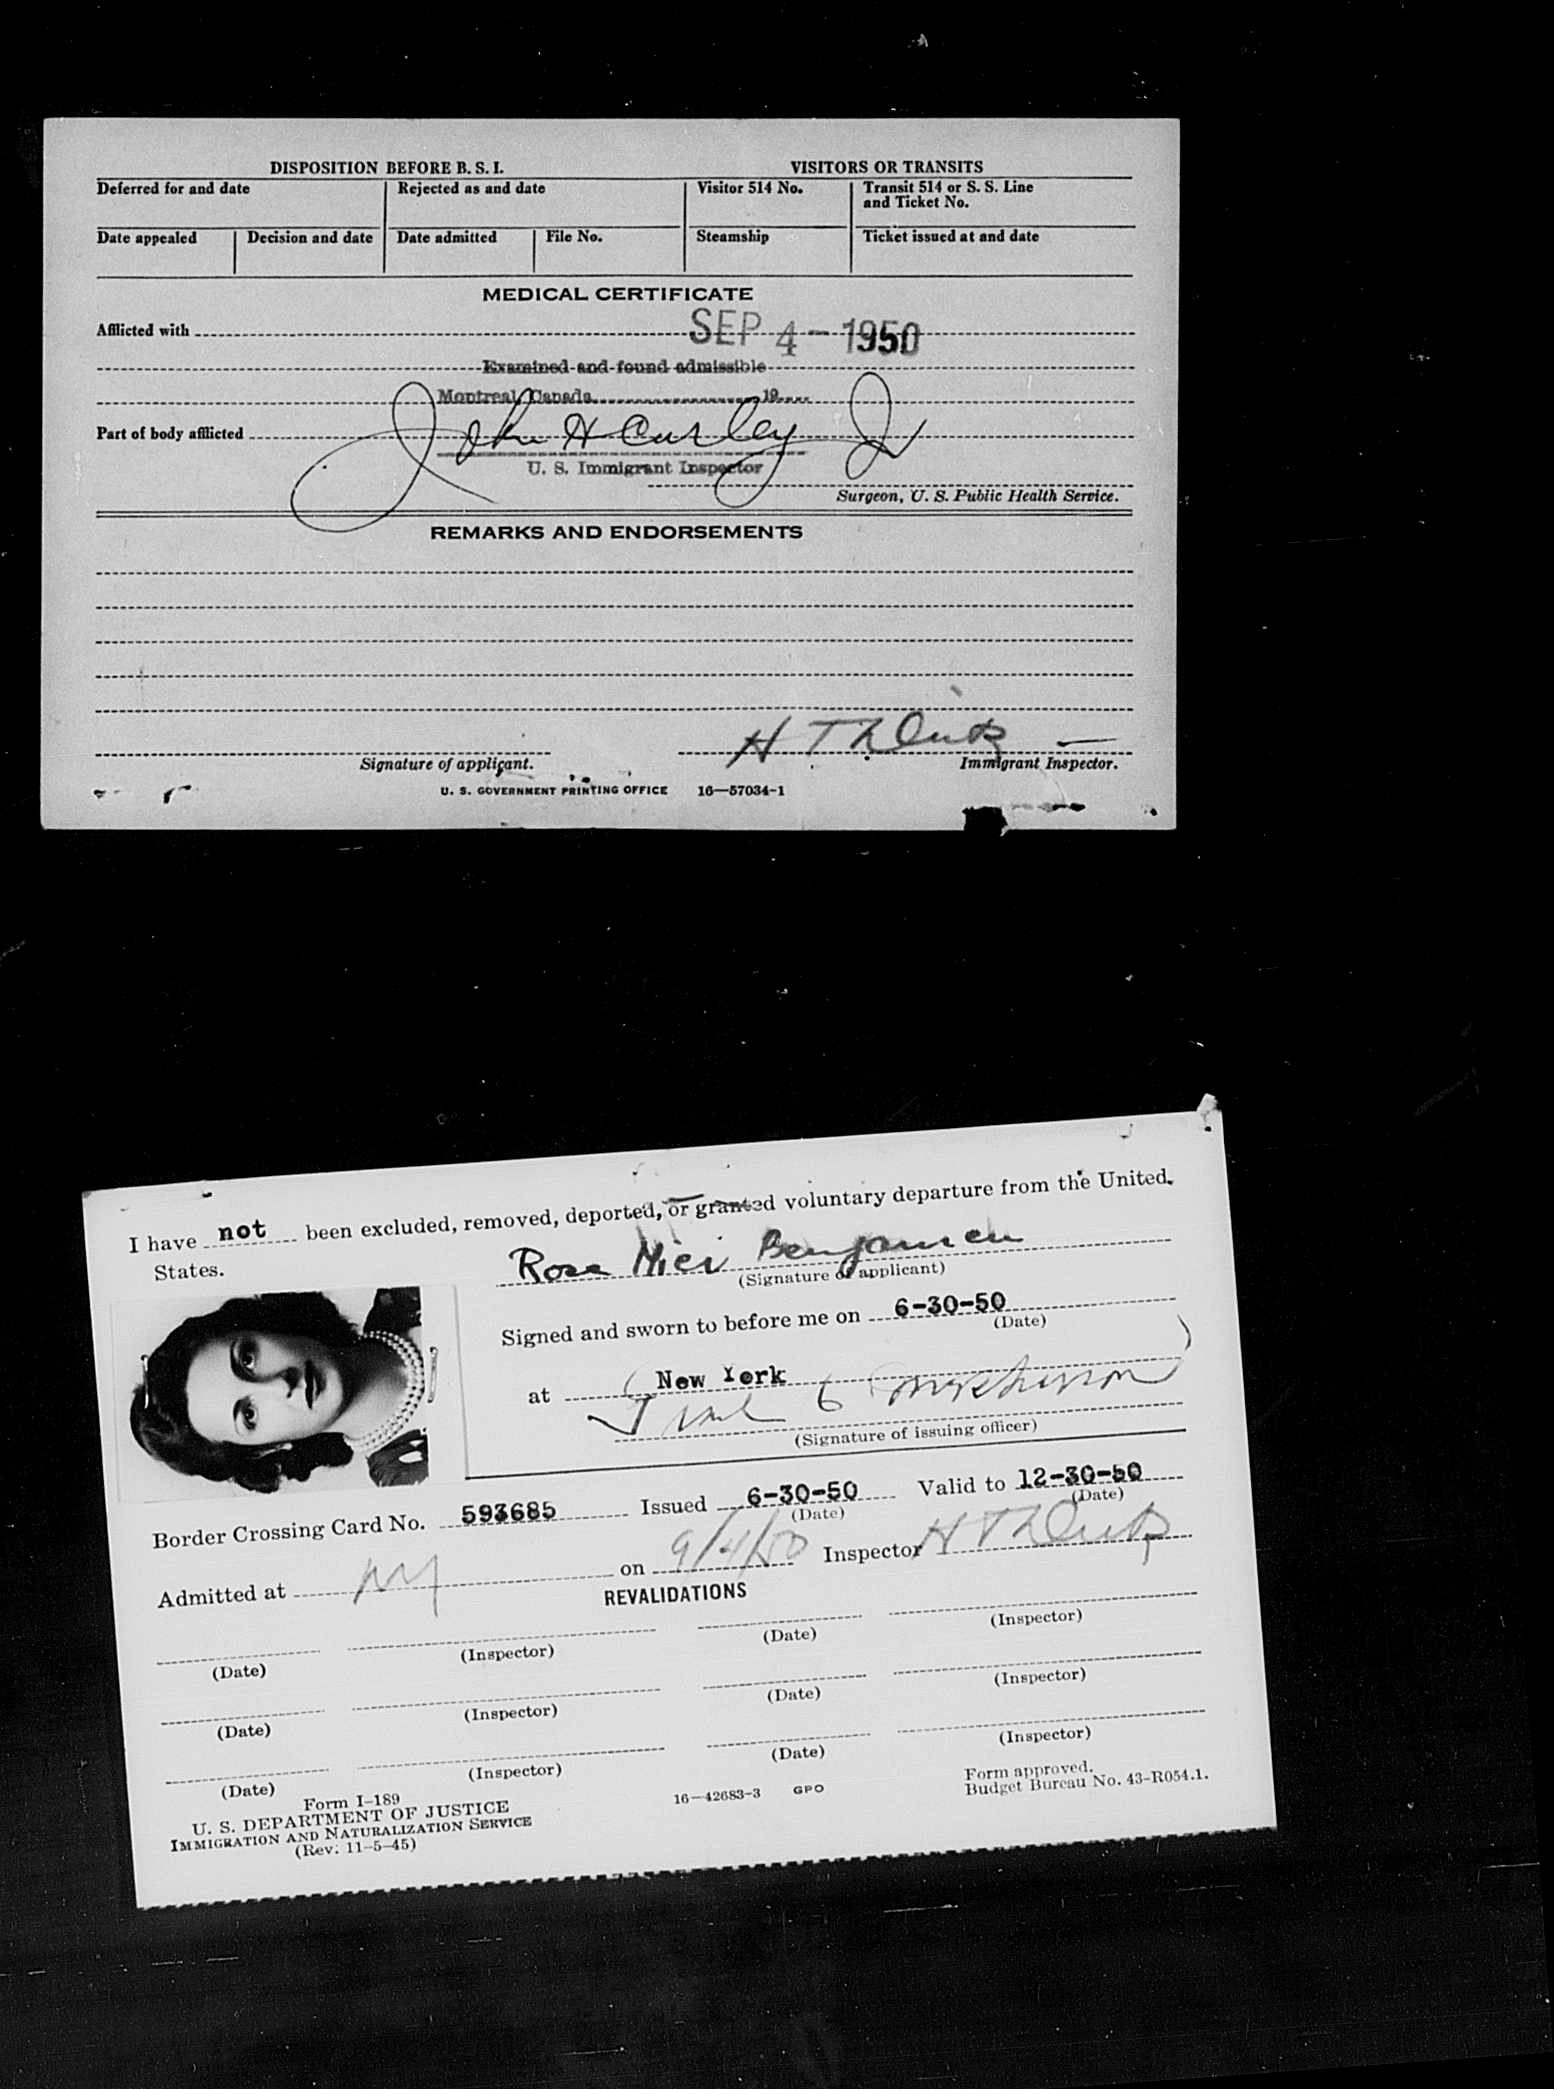 DISPOSITION BEFORE B. S. I. VISITORS OR TRANSITS
Deferred for and date Rejected as and date Visitor 514 No. Transit 514 or S. S. Line
and Ticket No.
Date appealed Decision and date Date admitted File No. Steamship Ticket issued at and date
MEDICAL CERTIFICATE
Afflicted with SEP 4 - 1950
Examined and found admissible
Montreal, Canada 19
Part of body afflicted John H Curley Jr
U. S. Immigrant Inspector
Surgeon, U. S. Public Health Service.
REMARKS AND ENDORSEMENTS
H T
Signature of applicant. Immigrant Inspector.
U. S. GOVERNMENT PRINTING OFFICE 16—57034-1
I have not been excluded, removed, deported, or granted voluntary departure from the United
States.
Rose Nici Benjamen
(Signature of applicant)
Signed and sworn to before me on 6-30-50
(Date)
at New York
(Signature of issuing officer)
Border Crossing Card No. 593685 Issued 6-30-50 Valid to 12-30-50
(Date) (Date)
Admitted at NY on 9/4/50 Inspector H T
REVALIDATIONS
(Date) (Inspector) (Date) (Inspector)
(Date) (Inspector) (Date) (Inspector)
(Date) (Inspector) (Date) (Inspector)
Form I-189
U. S. DEPARTMENT OF JUSTICE
IMMIGRATION AND NATURALIZATION SERVICE
(Rev. 11-5-45)
16—42683-3 GPO
Form approved.
Budget Bureau No. 43-R054.1.